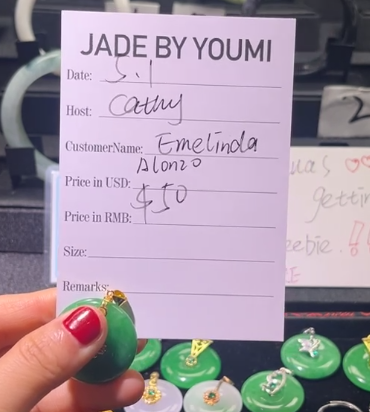 JADE BY YOUMI
Date: 5.1
Host: Cathy
CustomerName: Emelinda
Alonzo
Price in USD: $50
Price in RMB:
Size:
Remarks:
2
getting